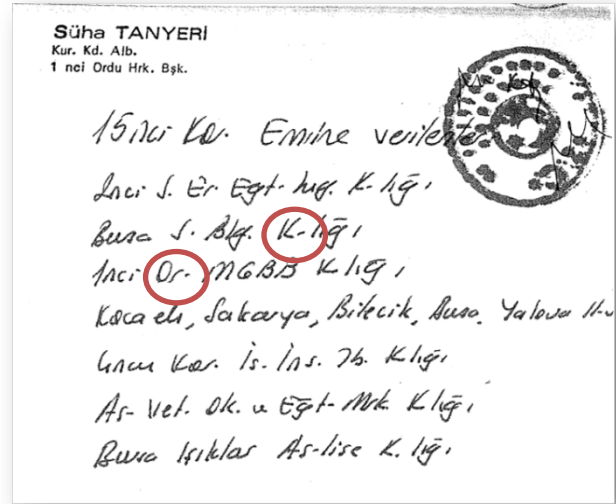 Süha TANYERİ
Kur. Kd. Alb.
1 nci Ordu Hrk. Bşk.
15 nci Kor. Emrine verilenler
1nci S. Er Eğt. Tug. K.lığı
Bursa S. Blg. K.lığı
1nci Or. MGBB K.lığı
Kocaeli, Sakarya, Bilecik, Bursa, Yalova
Kor. İs. İnş. Tb. K.lığı
As. Vet. Ok. ve Eğt. Mrk. K.lığı
Bursa Işıklar As. lise K.lığı